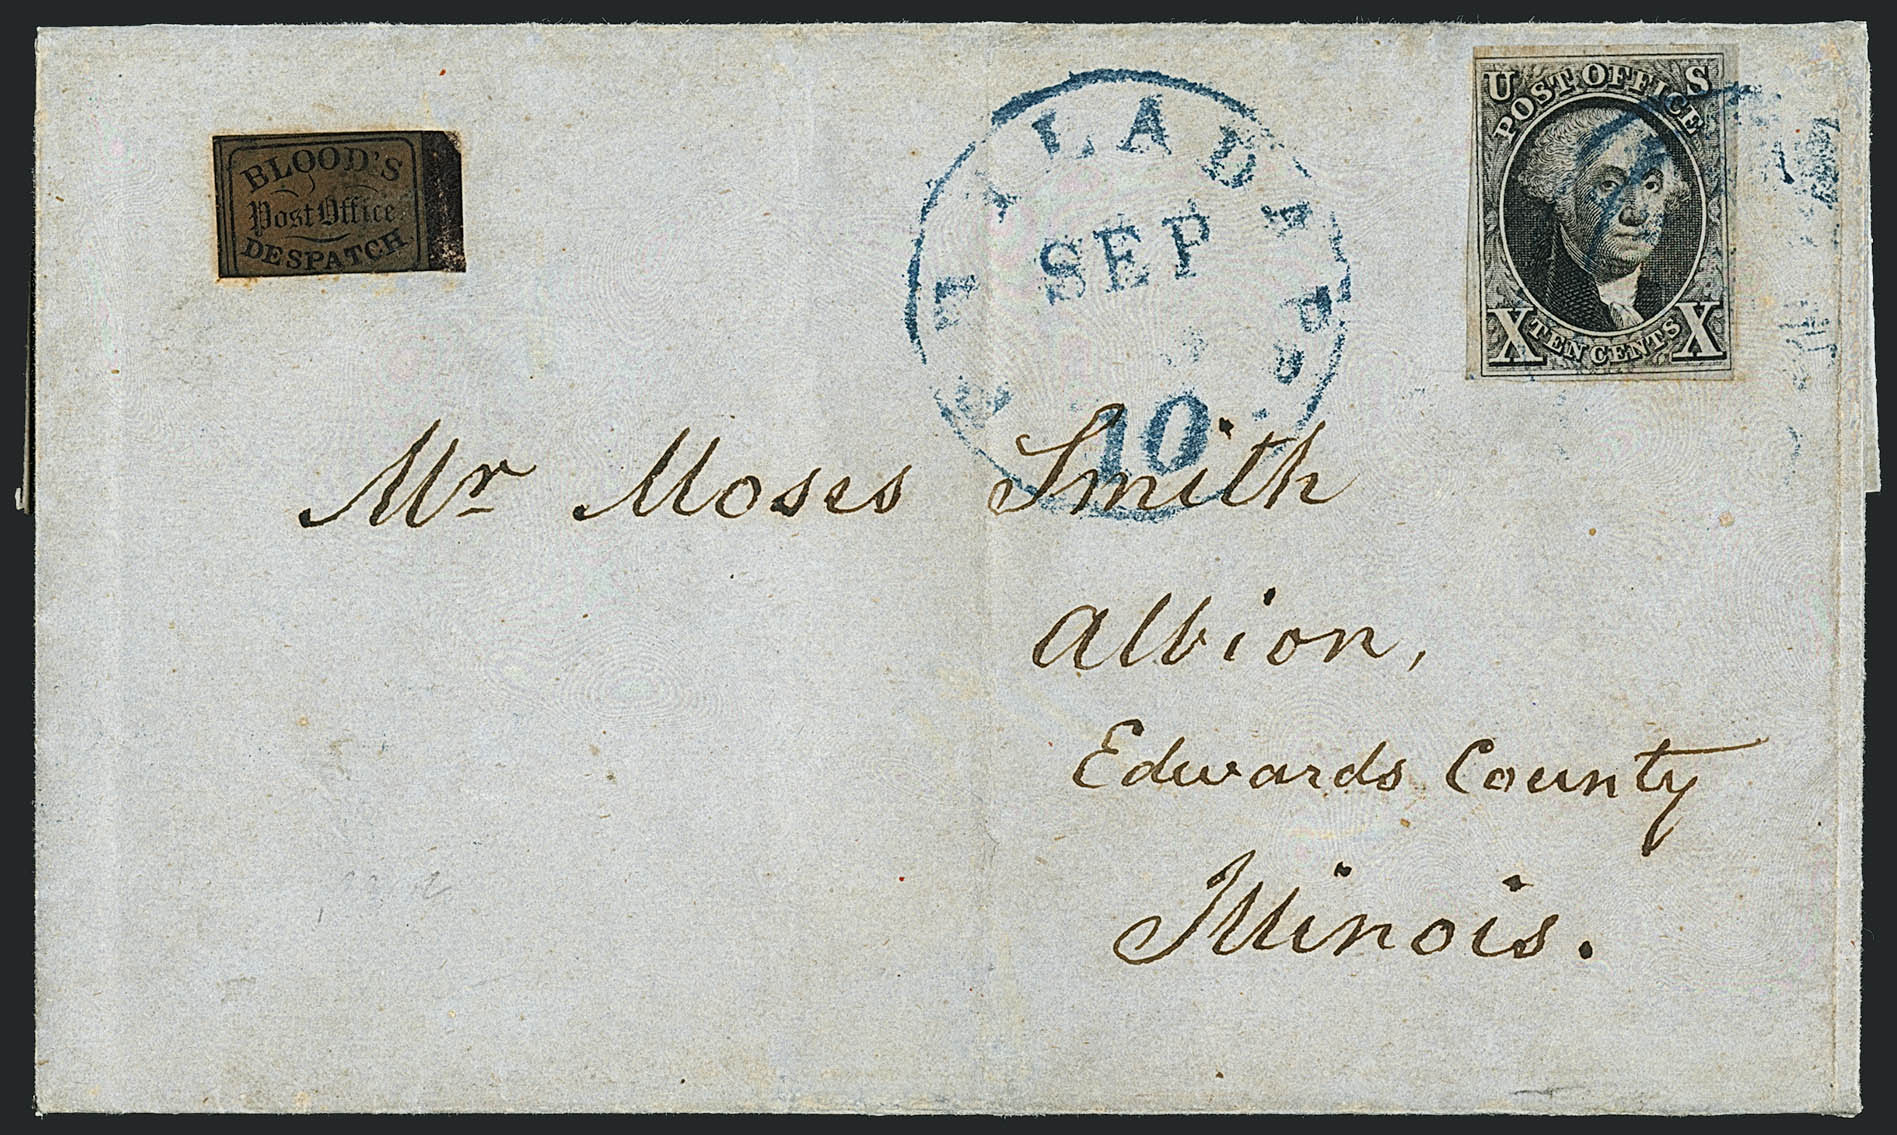 BLOOD'S
Post Office
DESPATCH
PHILADA Pa
SEP
10
U S
POST OFFICE
X TEN CENTS X
Mr Moses Smith
Albion,
Edwards County
Illinois.